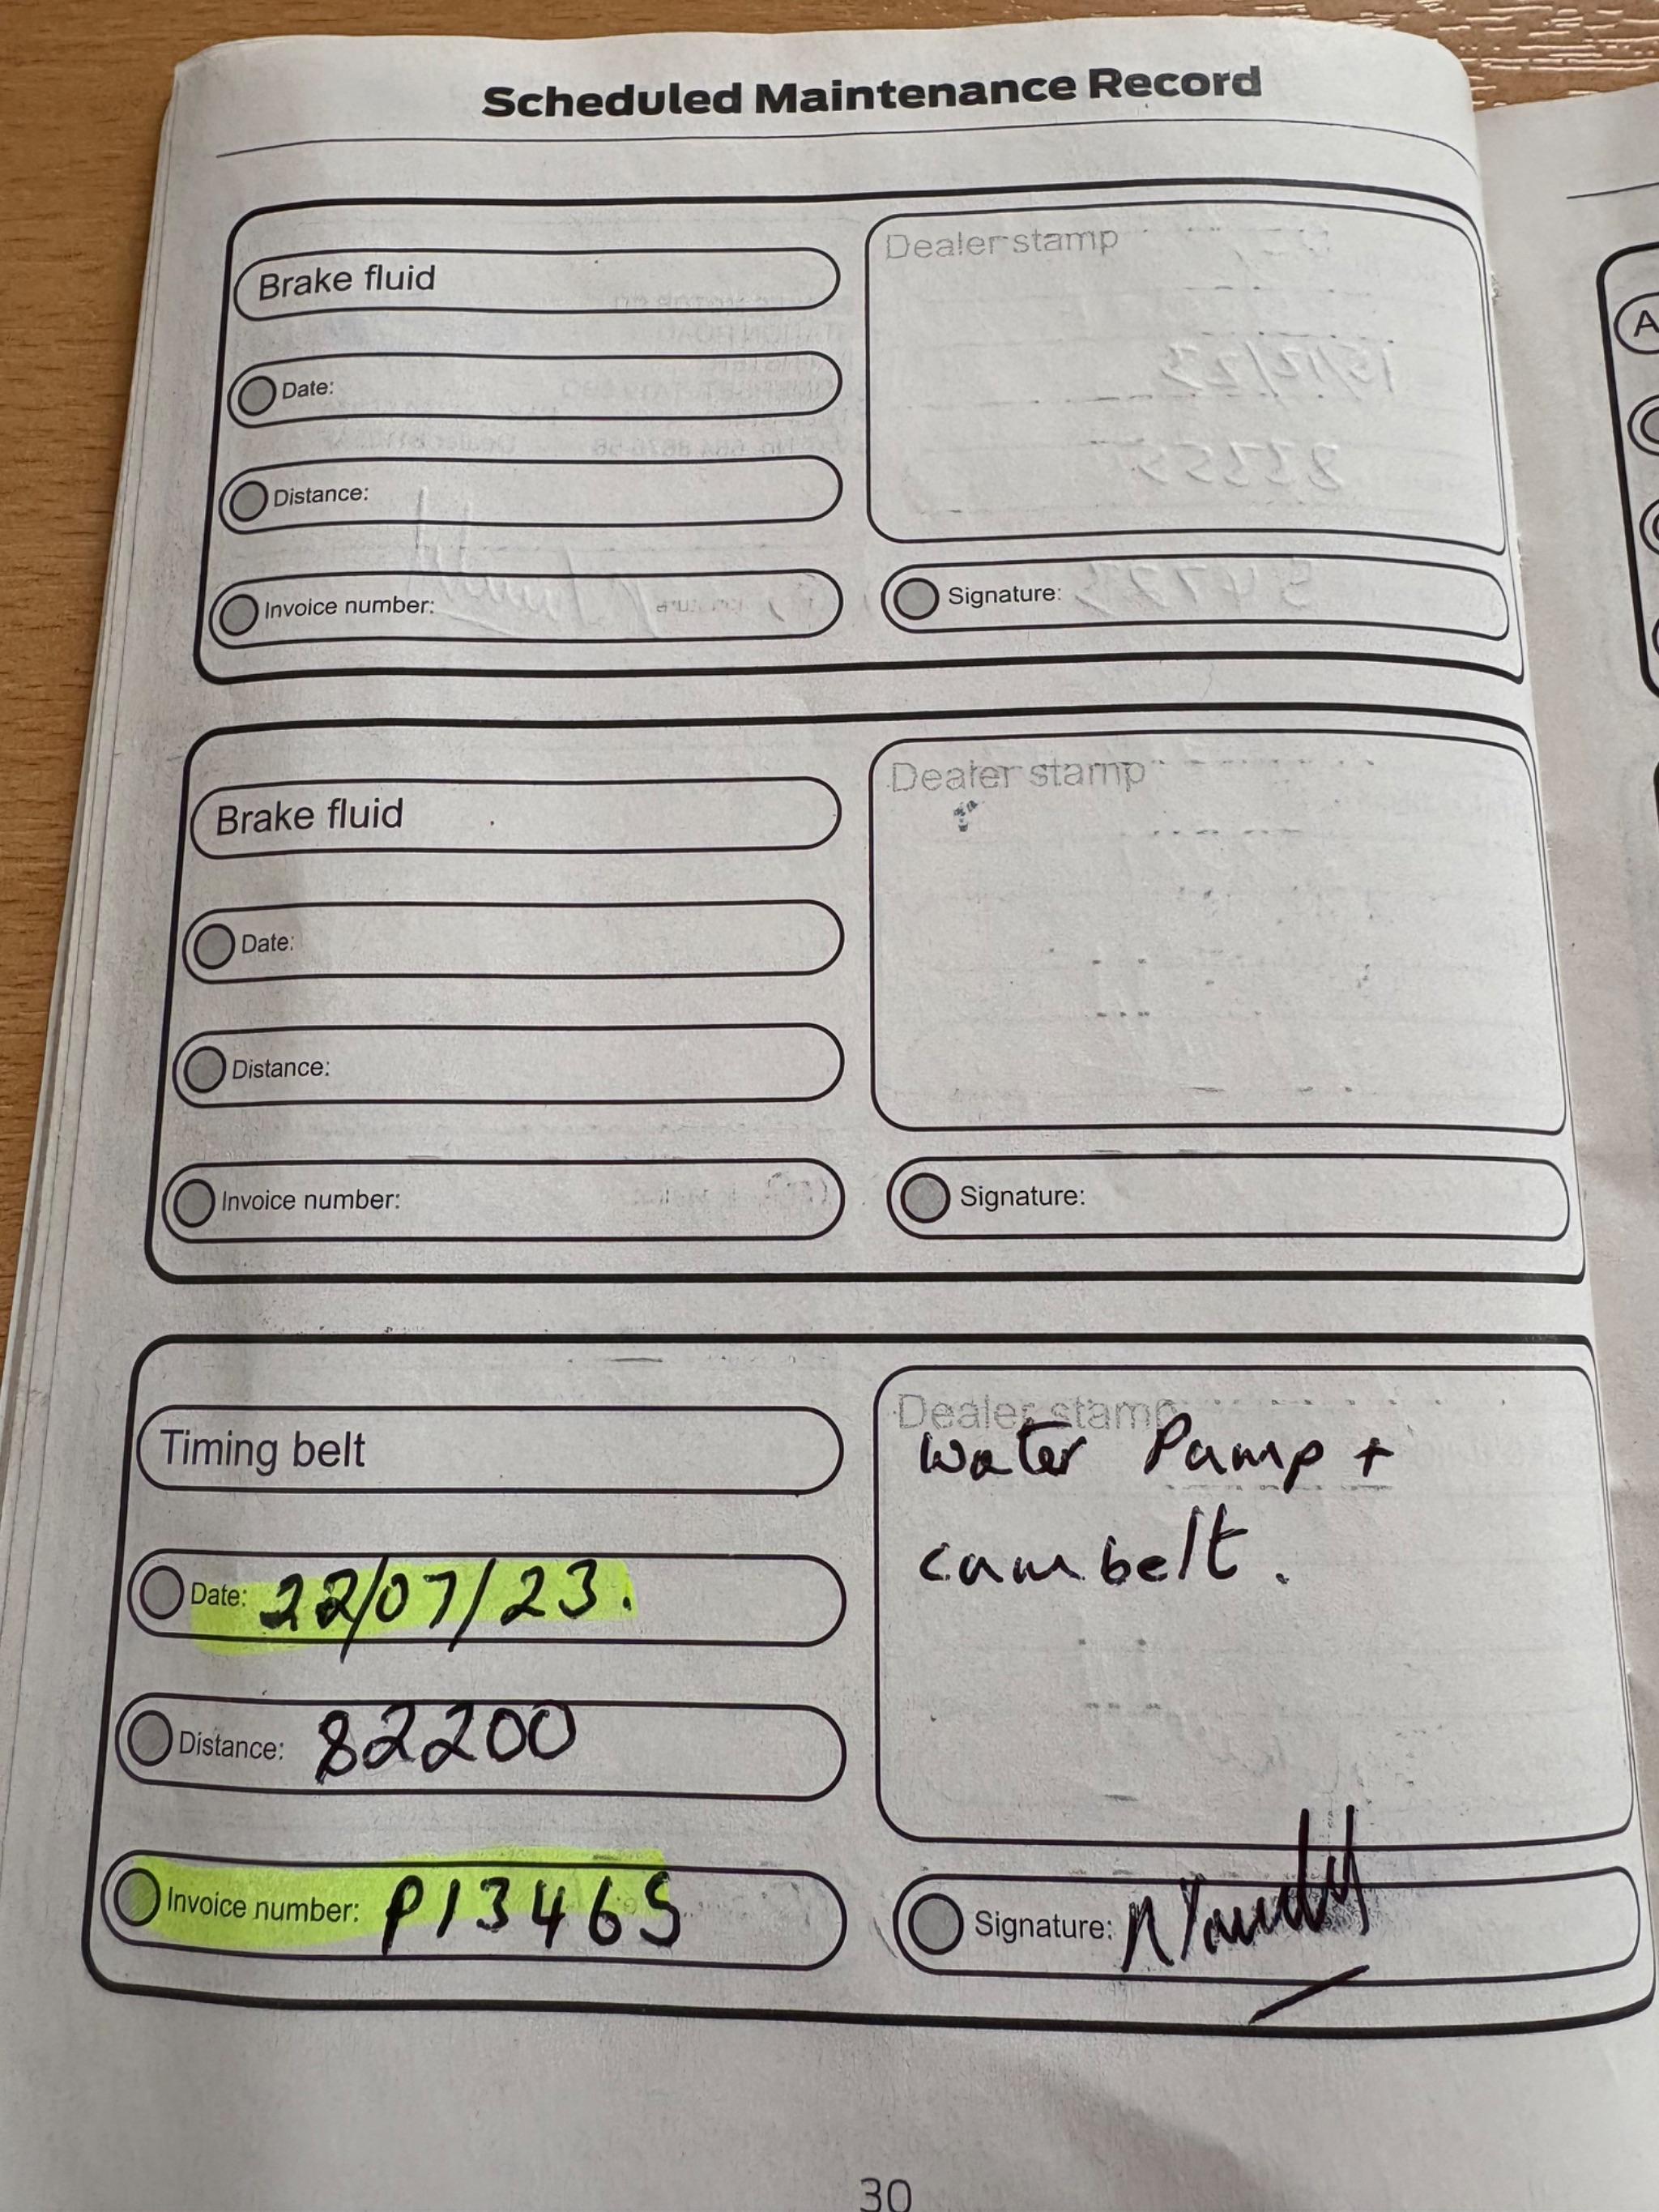 Scheduled Maintenance Record
Brake fluid
Dealer stamp
Date:
Distance:
Invoice number:
Signature:
Brake fluid
Dealer stamp
Date:
Distance:
Invoice number:
Signature:
Timing belt
Dealer stamp
Water Pump +
cambelt.
Date: 22/07/23.
Distance: 82200
Invoice number: P13465
Signature:
30
A